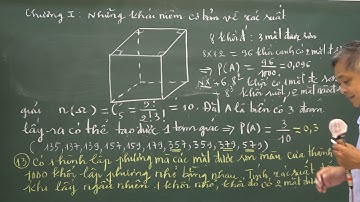 Chương I: Những khái niệm cơ bản về xác suất
8 khối: 3 mặt được sơn
8×12 = 96 khối cạnh có 2 mặt đ
⇒ P(A) = 96/1000 = 0,096
8² khối có 1 mặt đc sơn
8³ khối ruột, 2 mặt
giải n(Ω) = C³₅ = 5!/2!3! = 10. Đặt A là biến cố 3 đoạn
lấy ra có thể tạo được 1 tam giác ⇒ P(A) = 3/10 = 0,3
135, 137, 139, 157, 159, 179, 357, 359, 379, 579
(13) Có 1 hình lập phương mà các mặt được sơn màu cưa thành
1000 khối lập phương nhỏ bằng nhau. Tính xác suất
khi lấy ngẫu nhiên 1 khối nhỏ, khối đó có 2 mặt đ